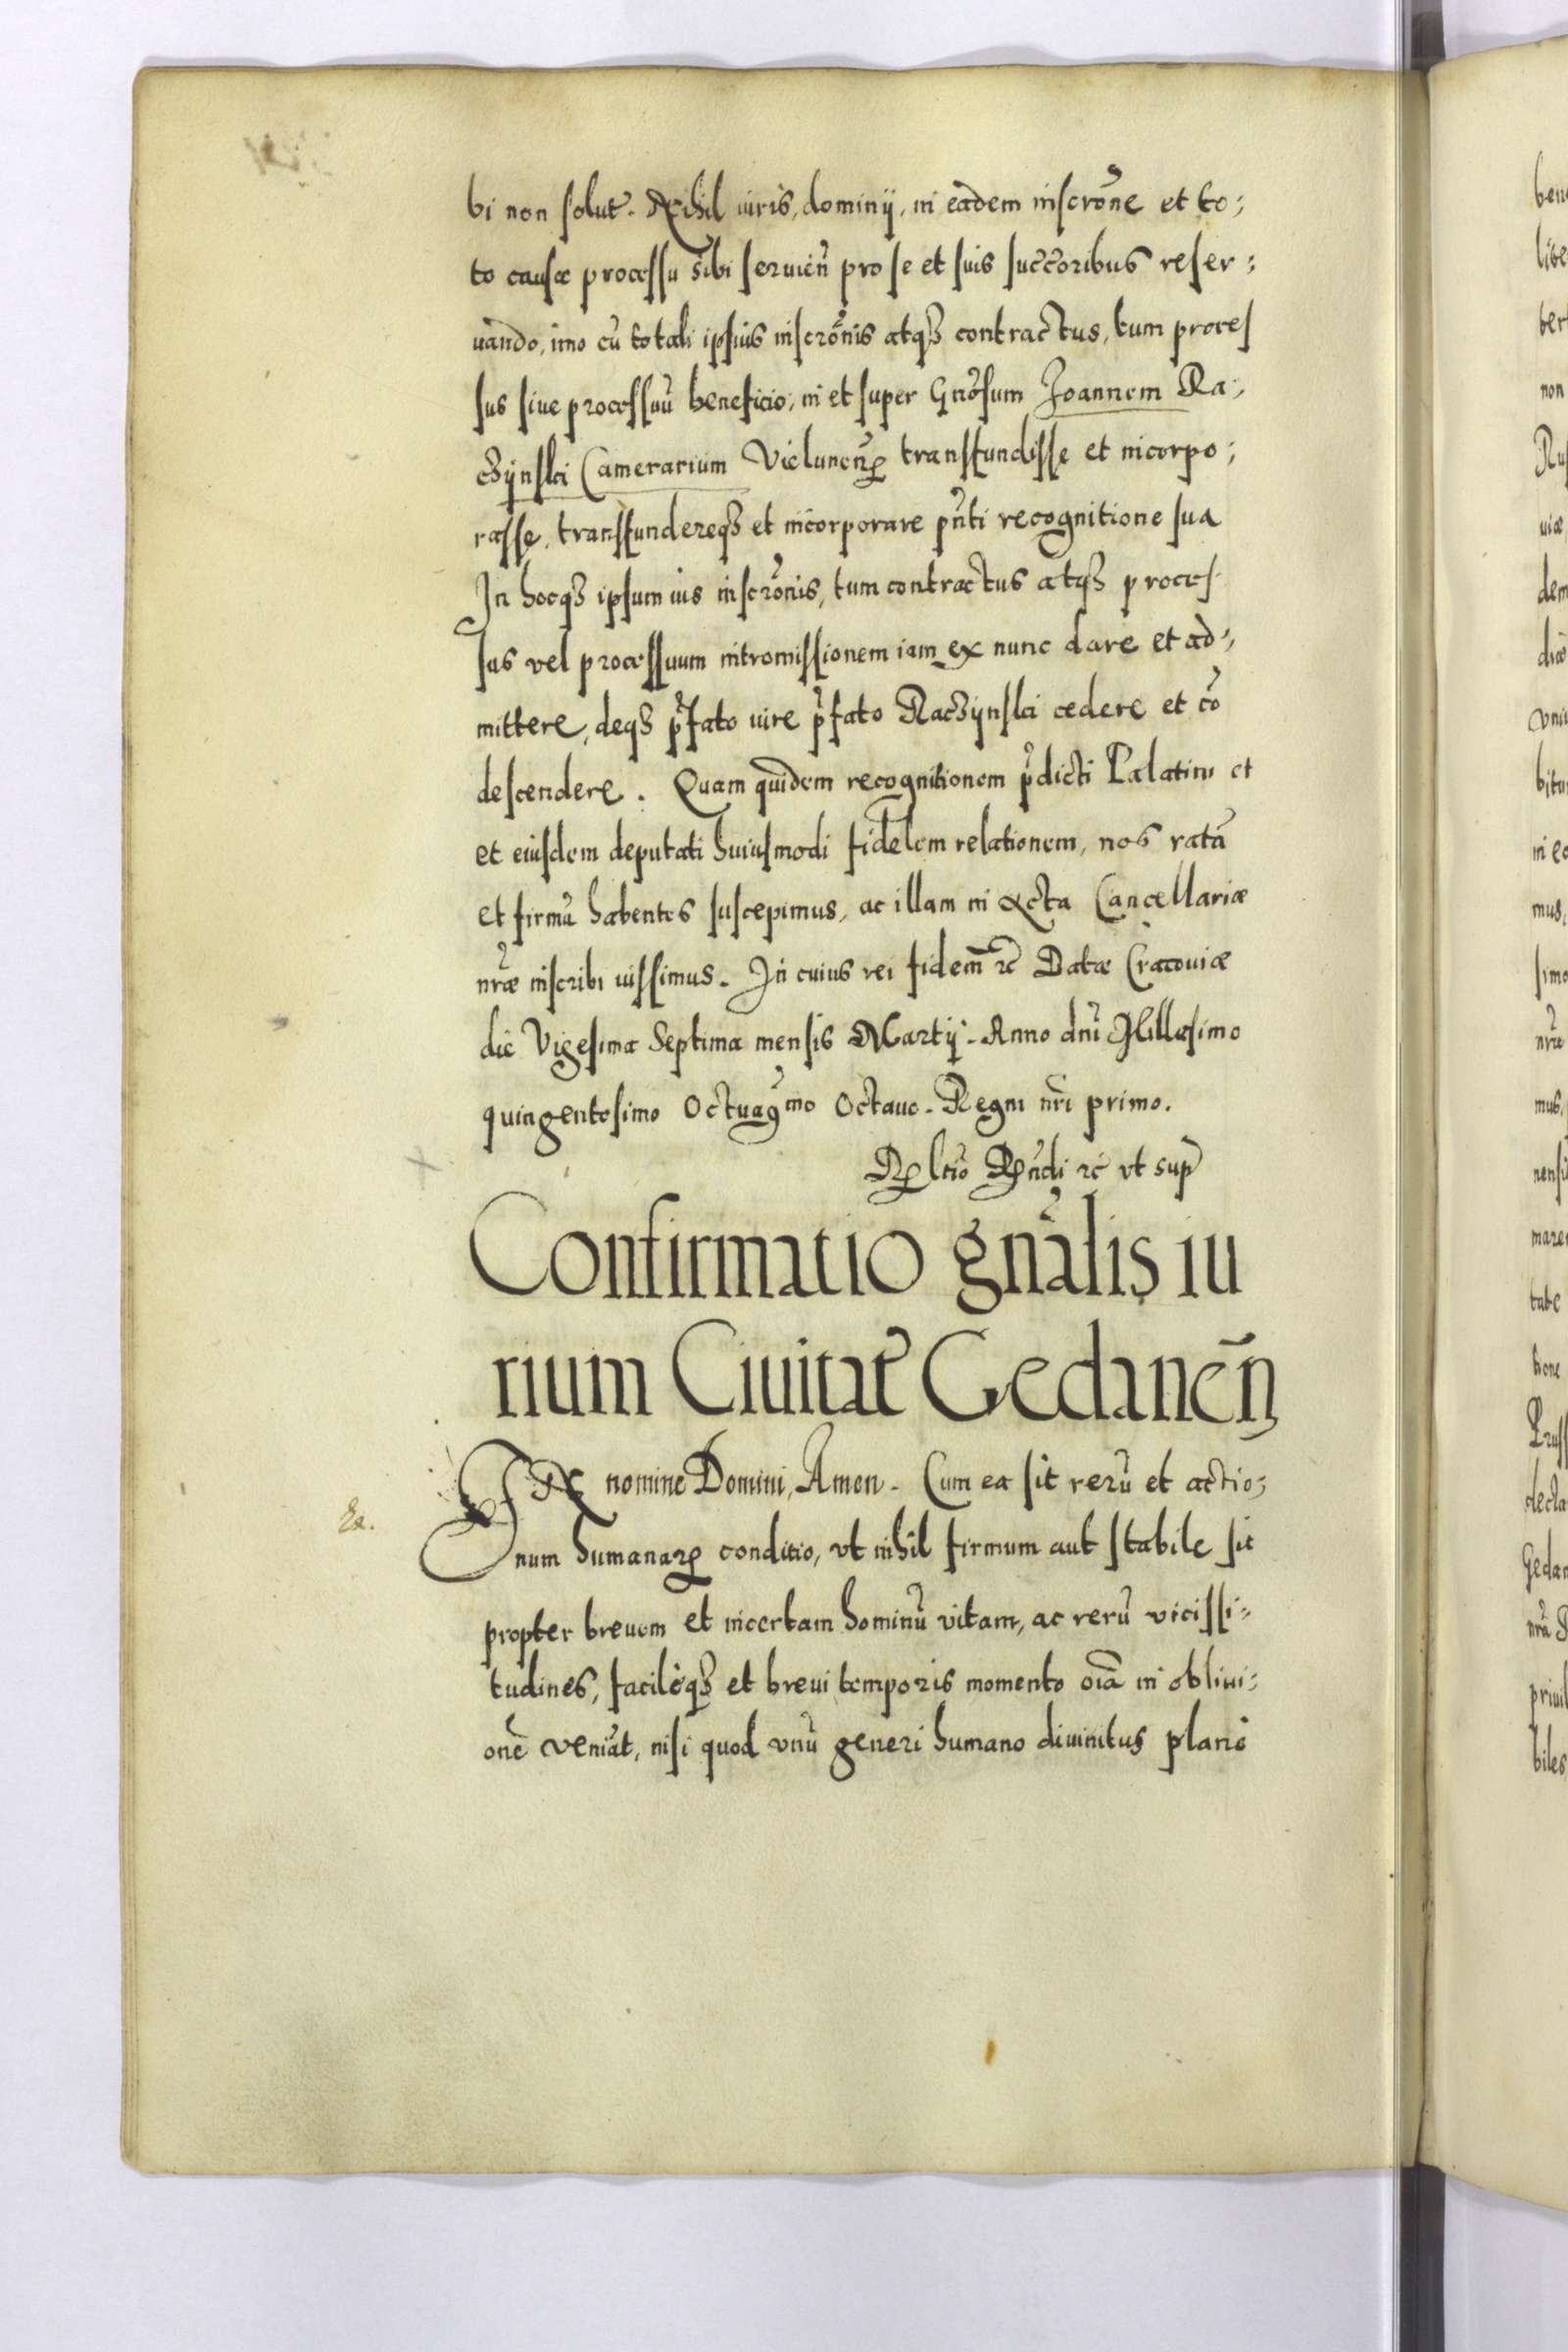 bi non solut. Nihil iuris, dominij, in eadem inscrõne et to;
to causæ processu sibi seruieñ pro se et suis succ̃oribus reser;
uando, imo cũ totali ipsius inscrõnis atqȝ contractus, tum proces
sus siue processuũ beneficio, in et super Gñosum Joannem Ra;
czijnski Camerarium Vieluneñ transfundisse et incorpo;
rasse, transfundereqȝ et incorporare pñti recognitione sua
In hocqȝ ipsum ius inscrõnis, tum contractus atqȝ proces
sus vel processuum intromissionem iam ex nunc dare et ad;
mittere, deqȝ p̃fato iure p̃fato Raczijnski cedere et cõ
descendere. Quam quidem recognitionem p̃dicti Palatini et
et eiusdem deputati huiusmodi fidelem relationem, nos ratã
et firmã habentes suscepimus, ac illam in Acta Cancellariæ
nr̃æ inscribi iussimus. In cuius rei fidem ꝛc̃ Datæ Cracouiæ
die Vigesima Septima mensis Martij. Anno dnĩ Millesimo
quingentesimo Octuagmo Octauo. Regni nr̃i primo.
Rltio Rñdi ꝛc̃ vt sup̃
Confirmatio gñalis iu
rium Ciuitat̃ Gedaneñ
IN nomine Domini, Amen. Cum ea sit rerũ et actio;
num humanarꝝ conditio, vt nihil firmum aut stabile sit
propter breuem et incertam hominũ vitam, ac rerũ vicissi;
tudines, facileqȝ et breui temporis momento oĩa in obliui;
onẽ veniãt, nisi quod vnũ generi humano diuinitus planè